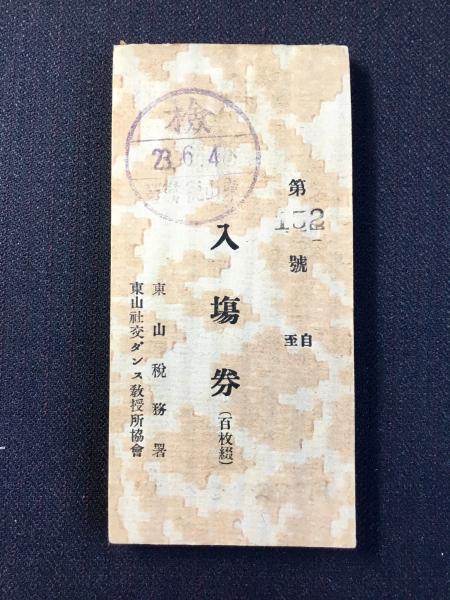 第
152
號
自
至
入場券
(百枚綴)
東山税務署
東山社交ダンス教授所協會
檢
23.6.4